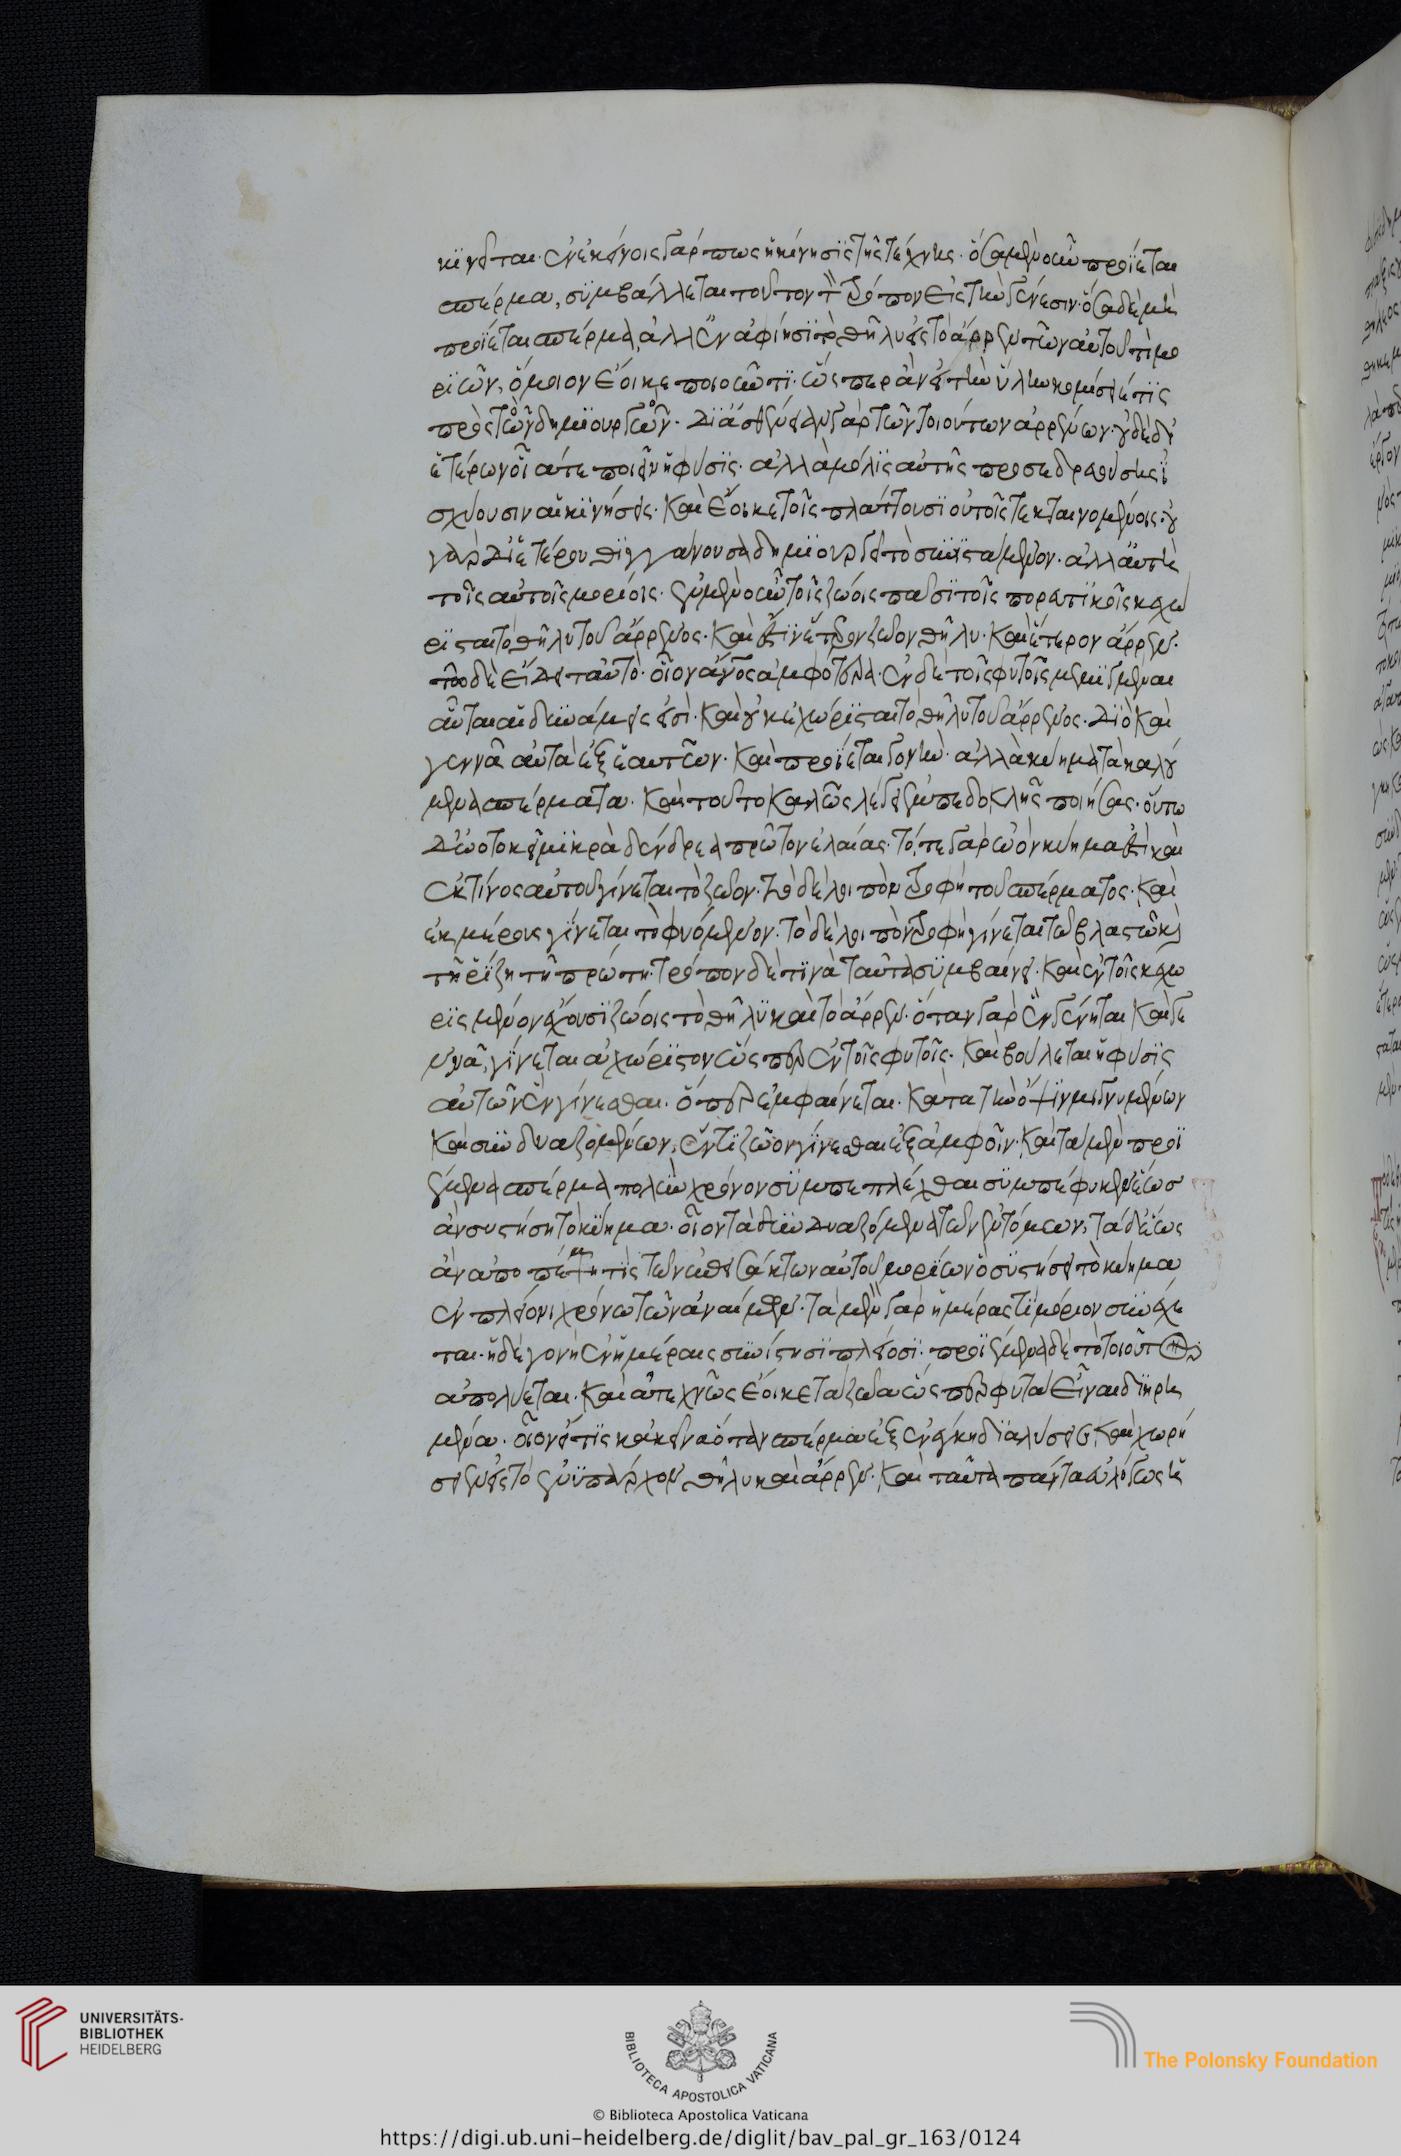 κινεῖται· ἐν ἐκείνοις γάρ πως ἡ κίνησις τῆς τέχνης· ὅσα μὲν οὖν προΐεται
σπέρμα, συμβάλλεται τοῦτον τὸν τρόπον εἰς τὴν γένεσιν· ὅσα δὲ μὴ
προΐεται σπέρμα, ἀλλ' ἐναφίησι τὸ θῆλυ εἰς τὸ ἄρρεν τῶν αὐτοῦ τι μο
ρίων, ὅμοιον ἔοικε ποιοῦντι· ὥσπερ ἂν εἰ τὴν ὕλην κομίσειέ τις
πρὸς τὸν δημιουργόν· δι' ἀσθένειαν γὰρ τῶν τοιούτων ἀρρένων· οὐδὲ δι'
ἑτέρων οἵα τε ποιεῖν ἡ φύσις· ἀλλὰ μόλις αὐτῆς προσεδρευούσης ἰ
σχύουσιν αἱ κινήσεις· καὶ ἔοικε τοῖς πλάττουσιν οὐ τοῖς τεκταινομένοις· οὐ
γὰρ δι' ἑτέρου θιγγάνουσα δημιουργεῖ τὸ συνιστάμενον· ἀλλ' αὐτὴ
τοῖς αὐτοῖς μορίοις· ἐν μὲν οὖν τοῖς ζώοις πᾶσι τοῖς πορευτικοῖς κεχω
ρισται τὸ θῆλυ τοῦ ἄρρενος· καὶ ἔστιν ἕτερον ζῶον θῆλυ· καὶ ἕτερον ἄρρεν·
τῷ δὲ εἴδει ταὐτὸ· οἷον ἄνθρωπος ἀμφότερα· ἐν δὲ τοῖς φυτοῖς μεμιγμέναι
αὗται αἱ δυνάμεις εἰσὶ· καὶ οὐ κεχώρισται τὸ θῆλυ τοῦ ἄρρενος· διὸ καὶ
γεννᾶ αὐτὰ ἐξ ἑαυτῶν· καὶ προΐεται γονὴν· ἀλλὰ κύημα τὰ καλού
μενα σπέρματα· καὶ τοῦτο καλῶς λέγει Ἐμπεδοκλῆς ποιήσας· οὕτω
δ' ὠοτοκεῖ μικρὰ δένδρεα πρῶτον ἐλαίας· τό, τε γὰρ ὠὸν κύημα ἐστὶ καὶ
ἐκ τίνος αὐτοῦ γίνεται τὸ ζῶον· τὸ δὲ λοιπὸν τροφή τοῦ σπέρματος· καὶ
ἐκ μέρους γίνεται τὸ φυόμενον· τὸ δὲ λοιπὸν τροφὴ γίνεται τῷ βλαστῷ καὶ
τῇ ῥίζῃ τῇ πρώτῃ· τρόπον δέ τινα ταῦτα συμβαίνει· καὶ ἐν τοῖς κεχω
ρισμένον ἔχουσι ζώοις τὸ θῆλυ καὶ τὸ ἄρρεν· ὅταν γὰρ ἓν γένηται καὶ γε
ννᾶ, γίνεται ἀχώριστον ὥσπερ ἐν τοῖς φυτοῖς· καὶ βούλεται ἡ φύσις
αὐτῶν ἓν γίνεσθαι· ὅπερ ἐμφαίνεται· κατὰ τὴν ὄψιν μιγνυμένων
καὶ συνδυαζομένων, ἕν τι ζῶον γίνεσθαι ἐξ ἀμφοῖν· καὶ τὰ μὲν προϊ
έμενα σπέρμα πολὺν χρόνον συμπεπλέχθαι συμπέφυκεν ἕως
ἂν συστήσῃ τὸ κύημα· οἷον τὰ συνδυαζόμενα τῶν ἐντόμων, τὰ δ' ἕως
ἂν ἀποπέμψῃ τὶς τῶν εἰσθεῖσα ἐκ τῶν αὐτοῦ μορίων ὃ συστήσει τὸ κύημα
ἐν πλείονι χρόνῳ τῶν ἀναίμων· τὰ μὲν γὰρ ἡμέρας τί μόριον συνέχε
ται· ἡ δὲ γονὴ ἐν ἡμέραις συνίστησι πλείοσι· προϊέμενα δὲ τὸ τοιοῦτον
ἀπολύεται· καὶ ἀτεχνῶς ἔοικε τὰ ζῶα ὥσπερ φυτὰ εἶναι διῃρη
μένα· οἷον εἴ τις κἀκεῖνα ὅταν σπέρμα ἐξενέγκῃ διαλύσειε καὶ χωρί
σειεν εἰς τὸ ἐνυπάρχον θῆλυ καὶ ἄρρεν· καὶ ταῦτα πάντα εὐλόγως ἡ
UNIVERSITÄTS-
BIBLIOTHEK
HEIDELBERG
BIBLIOTECA APOSTOLICA VATICANA
The Polonsky Foundation
© Biblioteca Apostolica Vaticana
https://digi.ub.uni-heidelberg.de/diglit/bav_pal_gr_163/0124